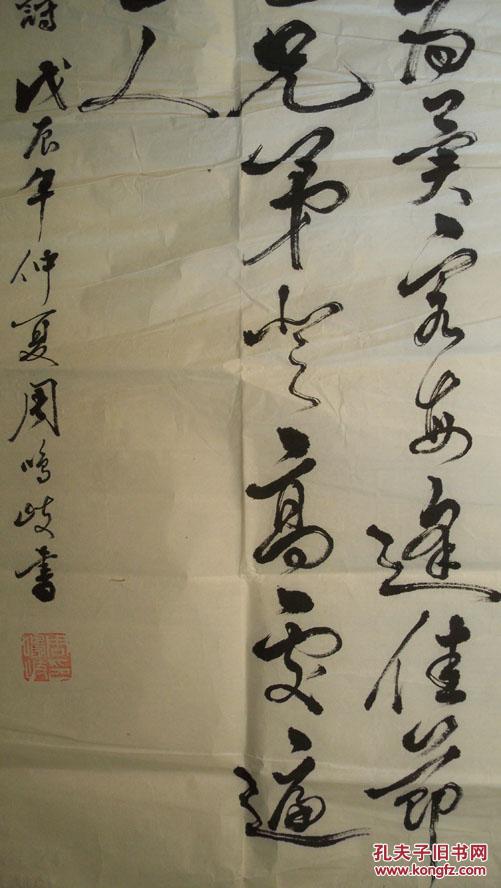 為異客每逢佳節
兄弟登高處遍
一人
詩 戊辰年仲夏周鳴岐書
孔夫子旧书网
kongfz.com